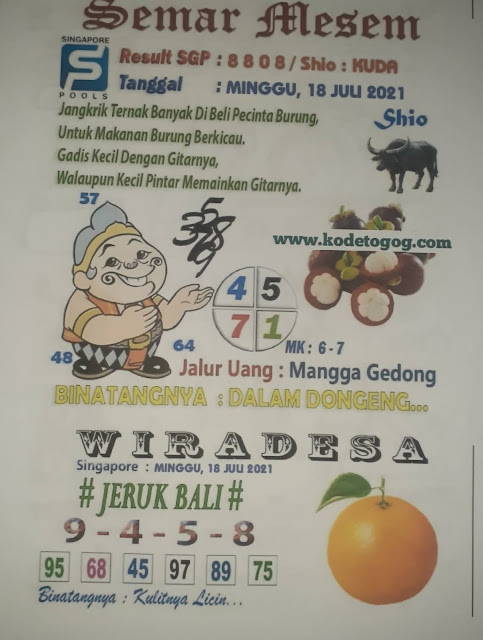 Semar Mesem
SINGAPORE
S
POOLS
Result SGP : 8 8 0 8 / Shio : KUDA
Tanggal : MINGGU, 18 JULI 2021
Jangkrik Ternak Banyak Di Beli Pecinta Burung,
Untuk Makanan Burung Berkicau.
Gadis Kecil Dengan Gitarnya,
Walaupun Kecil Pintar Memainkan Gitarnya.
Shio
57
www.kodetogog.com
4 5
7 1
48
64
MK : 6 - 7
Jalur Uang : Mangga Gedong
BINATANGNYA : DALAM DONGENG...
WIRADESA
Singapore : MINGGU, 18 JULI 2021
# JERUK BALI #
9 - 4 - 5 - 8
95 68 45 97 89 75
Binatangnya : Kulitnya Licin...